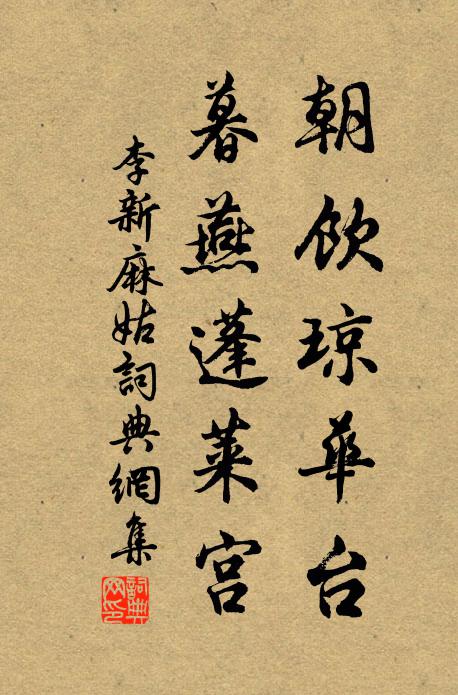 朝饮琼华台
暮燕蓬莱宫
李新麻姑詞典網集
詞典网印